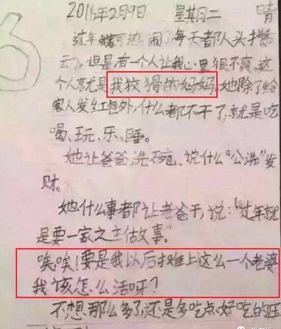 2016年2月9日 星期二 晴
这年可热闹了每天都人头攒
云,但是有一个人让我心里很不爽。这
个人就是我狡猾的妈妈,她除了给
家人发红包外,什么都不干了,就是吃
喝、玩、乐、睡。
她让爸爸洗碗,说什么“公洗”发
财。
她什么事都让老爸干,说:“过年就
是要一家之主做事。”
唉唉!要是我以后摊上这么一个老婆
我该怎么活呀?
不想那么多了还是多吃点好吃的